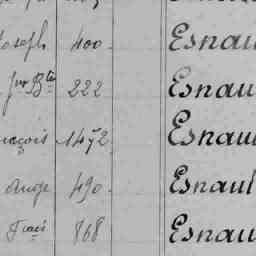 Joseph 400 Esnau
Jn Bte 222 Esnau
ançois 1472 Esnaul
Ange 490 Esnaul
Fçois 868 Esnau